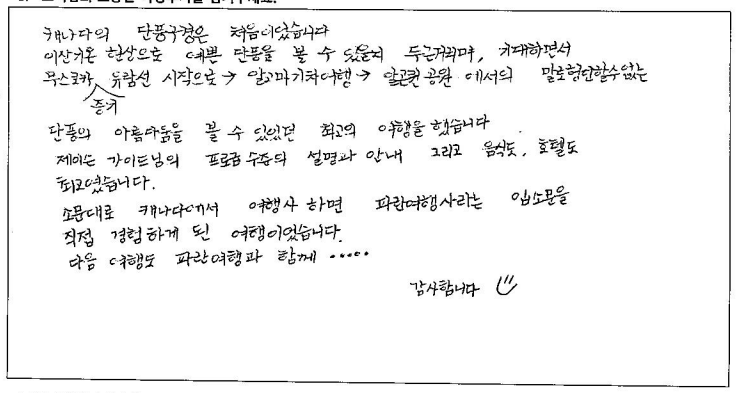 캐나다의 단풍구경은 처음이었습니다
이상기온 현상으로 예쁜 단풍을 볼 수 있을지 두근거리며, 기대하면서
무스코카 증기 유람선 시작으로 → 알고마기차여행 → 알곤퀸 공원 에서의 말로형단할수없는
단풍의 아름다움을 볼 수 있었던 최고의 여행을 했습니다
제이든 가이드님의 프로급 수준의 설명과 안내 그리고 음식도, 호텔도
최고였습니다.
소문대로 캐나다에서 여행사 하면 파란여행사라는 입소문을
직접 경험하게 된 여행이었습니다.
다음 여행도 파란여행과 함께 .....
감사합니다